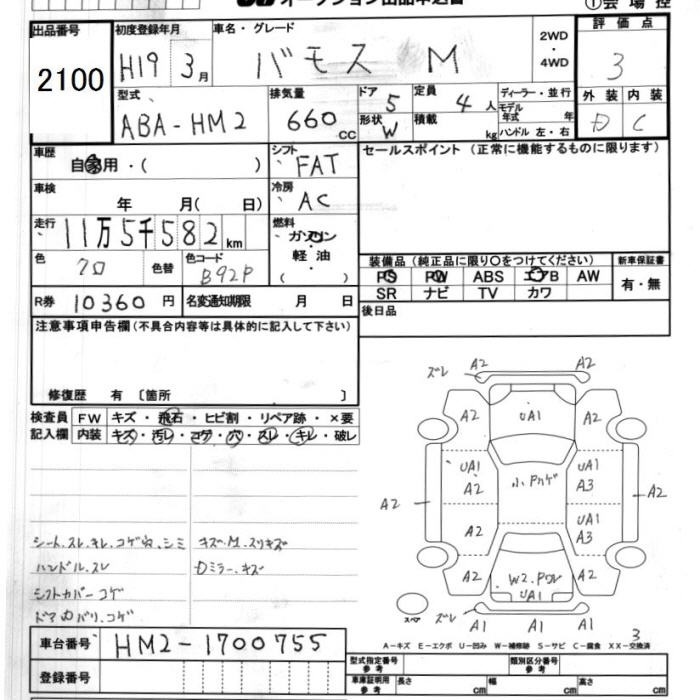 オークション出品申込書
①会場控
出品番号 2100
初度登録年月 H19 3月
車名・グレード バモス M
2WD・4WD
評価点 3
外装 D
内装 C
型式 ABA-HM2
排気量 660 CC
ドア 5
形状 W
定員 4人
積載 kg
ディーラー・並行
モデル年式 年
ハンドル 左・右
車歴 自家用・( )
シフト FAT
セールスポイント(正常に機能するものに限ります)
車検 年 月( 日)
冷房 AC
走行 11万5千582 km
燃料 ガソリン・軽油・( )
色 クロ
色替
色コード B92P
装備品(純正品に限り○をつけてください)
新車保証書 有・無
PS PW ABS エアB AW
SR ナビ TV カワ
R券 10360円
名変通知期限 月 日
後日品
注意事項申告欄(不具合内容等は具体的に記入して下さい)
修復歴 有 〔箇所 〕
検査員記入欄
FW キズ・飛石・ヒビ割・リペア跡・×要
内装 キズ・汚レ・コゲ・穴・スレ・キレ・破レ
シート.スレ.キレ.コゲ穴.シミ
ハンドル.スレ
シフトカバーコゲ
ドア内バリ.コゲ
キズ.M.スリキズ
Dミラー.キズ
ズレ A2 A2
A2 UA1 A2
UA1 A2 小.Pカゲ UA1 A3
A2 A2
A2 UA1 A3
A2 W2.Pワレ UA1 A2
スペア
ズレ A1 A1
3
A－キズ E－エクボ U－凹み W－補修跡 S－サビ C－腐食 XX－交換済
車台番号 HM2-1700755
登録番号
型式指定番号 参考
類別区分番号 参考
車庫証明用 参考 長さ cm 幅 cm 高さ cm